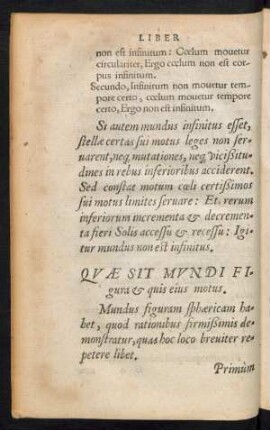 LIBER
non est infinitum: Cœlum mouetur
circulariter, Ergo cœlum non est cor-
pus infinitum.
Secundo, Infinitum non mouetur tem-
pore certo, cœlum mouetur tempore
certo, Ergo non est infinitum.
Si autem mundus infinitus esset,
stellæ certas sui motus leges non ser-
uarent, neq; mutationes, neq; vicissitu-
dines in rebus inferioribus acciderent.
Sed constat motum cœli certissimos
sui motus limites seruare: Et rerum
inferiorum incrementa & decremen-
ta fieri Solis accessu & recessu: Igi-
tur mundus non est infinitus.
QVÆ SIT MVNDI FI-
gura & quis eius motus.
Mundus figuram sphæricam ha-
bet, quod rationibus firmißimis de-
monstratur, quas hoc loco breuiter re-
petere libet.
Primùm